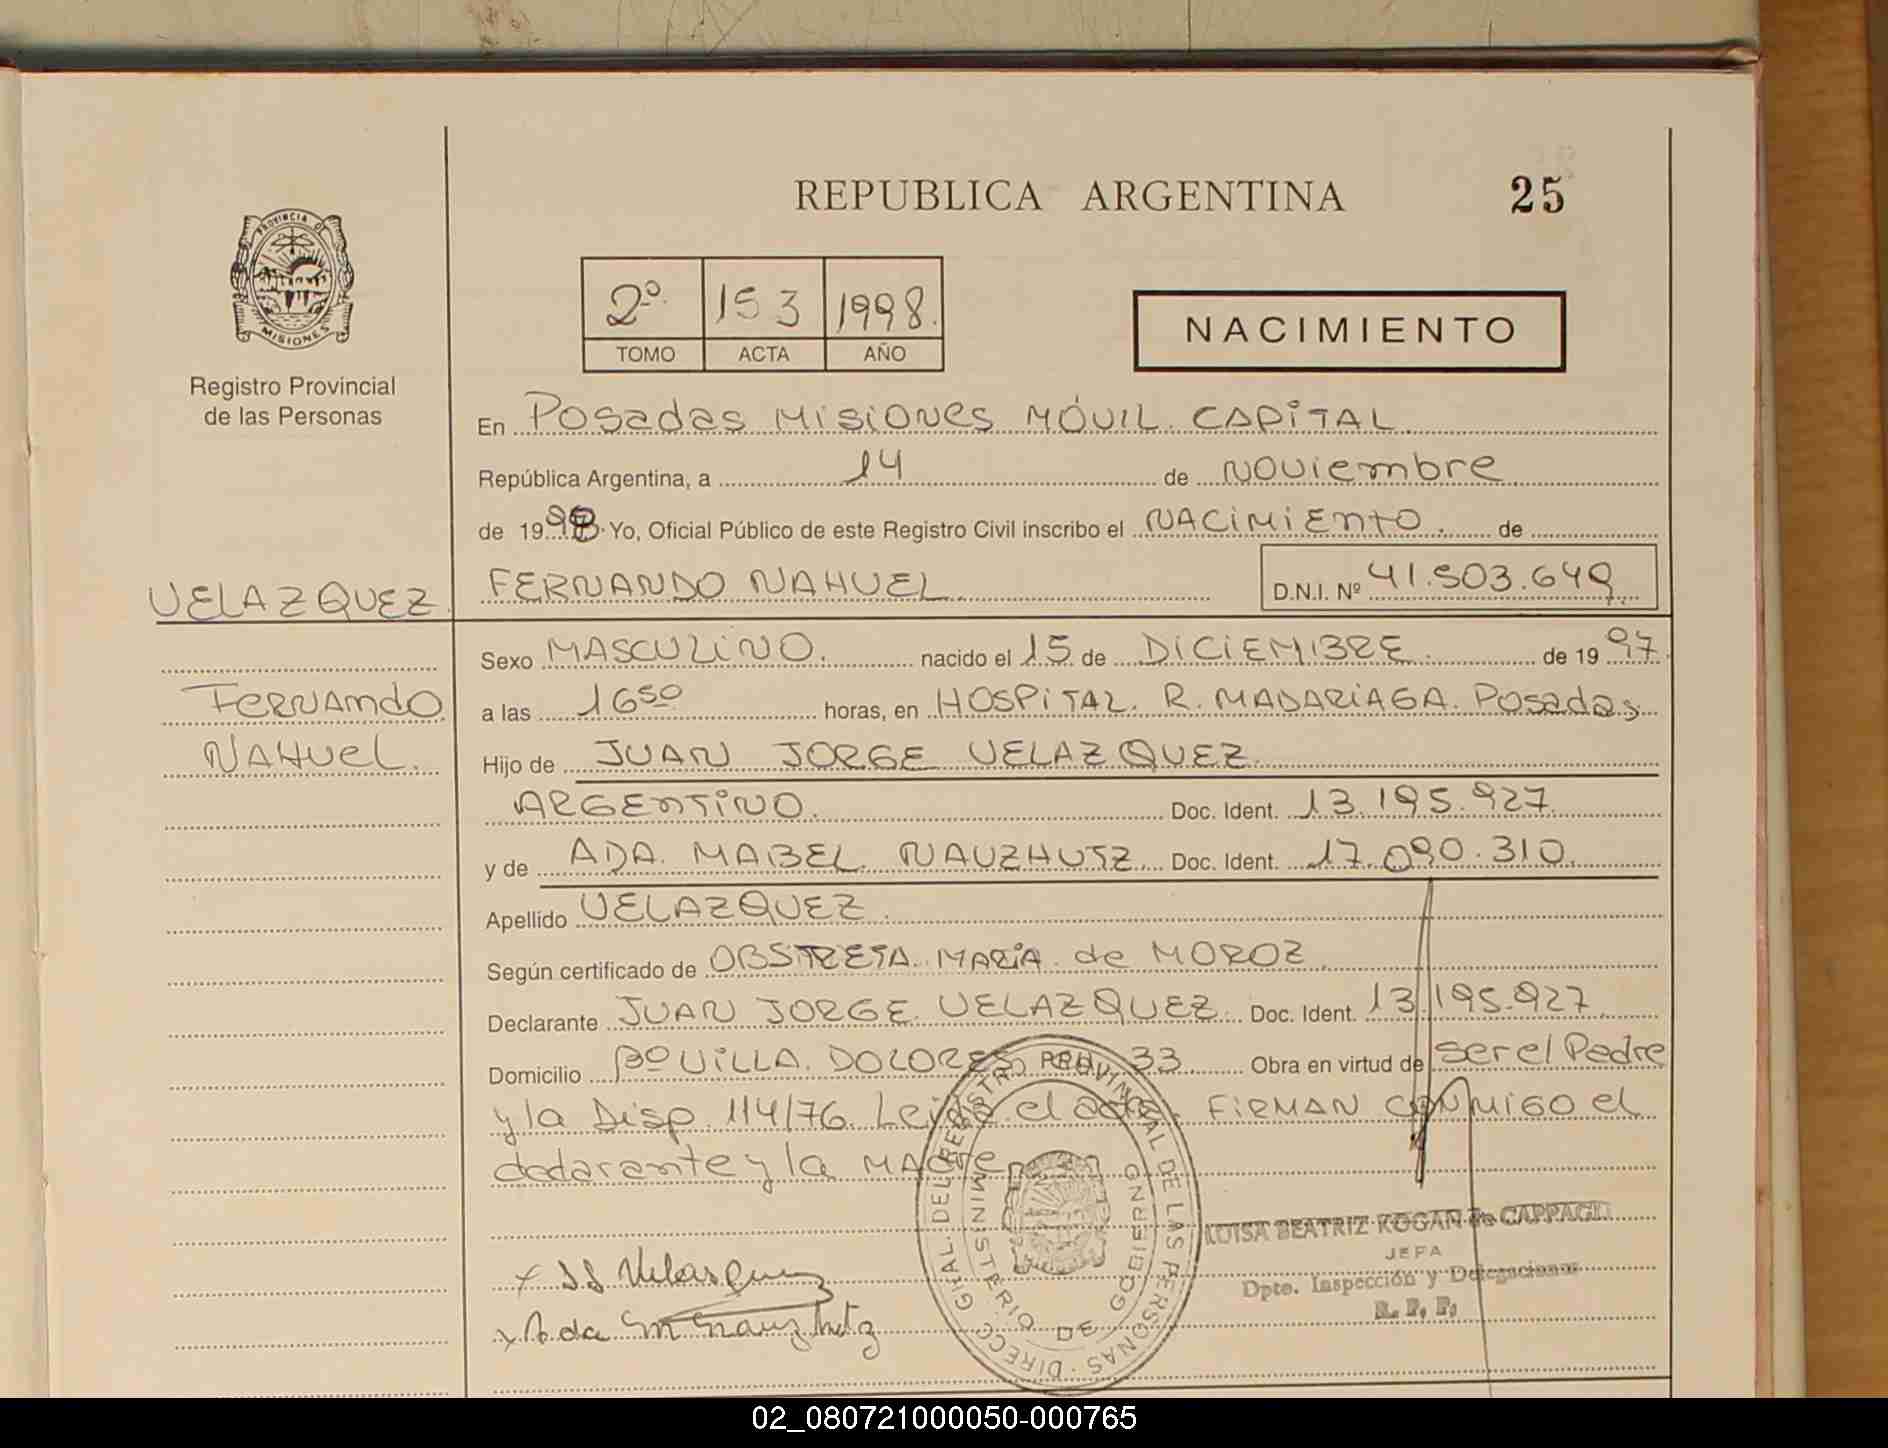 REPUBLICA ARGENTINA 25
PROVINCIA DE MISIONES
Registro Provincial
de las Personas
2º 153 1998.
TOMO ACTA AÑO
NACIMIENTO
En Posadas Misiones Móvil. Capital.
República Argentina, a 14 de Noviembre
de 1998. Yo, Oficial Público de este Registro Civil inscribo el Nacimiento. de
VELAZQUEZ. FERNANDO NAHUEL. D.N.I. Nº 41.503.649.
Sexo MASCULINO. nacido el 15 de DICIEMBRE. de 19 97.
Fernando a las 16 50 horas, en HOSPITAL. R. MADARIAGA. Posadas
Nahuel. Hijo de JUAN JORGE VELAZQUEZ.
ARGENTINO. Doc. Ident. 13.195.927.
y de ADA. MABEL. NAUZHUTZ. Doc. Ident. 17.090.310.
Apellido VELAZQUEZ.
Según certificado de OBSTRETA. MARIA de MOROZ.
Declarante JUAN JORGE. VELAZQUEZ. Doc. Ident. 13.195.927.
Domicilio Bº VILLA. DOLORES 33. Obra en virtud de ser el Padre
y la Disp. 114/76. Leída el acta. FIRMAN CONMIGO el
declarante y la MAdre.
x JJ Velasquez
x Ada M Nauzhutz
DIRECC. GRAL. DEL REGISTRO PROVINCIAL DE LAS PERSONAS
MINISTERIO DE GOBIERNO
LUISA BEATRIZ KOGAN de
JEFA
Dpto. Inspección y Delegaciones
R. P. P.
02_080721000050-000765